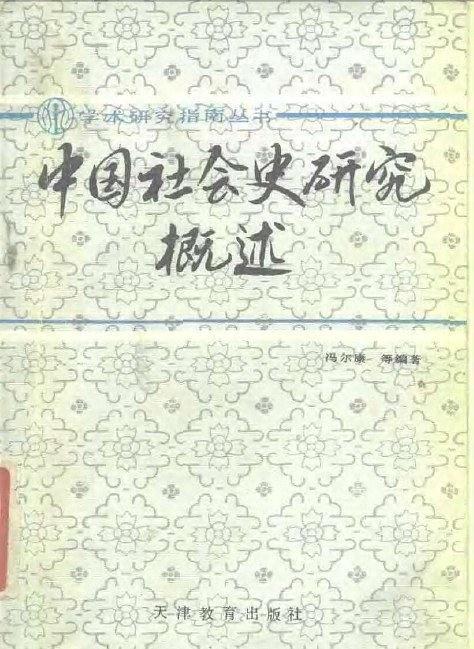 学术研究指南丛书
中国社会史研究
概述
冯尔康 等编著
天津教育出版社